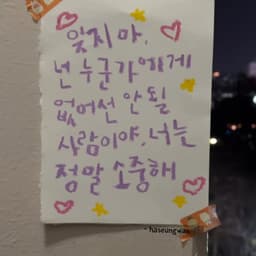 잊지마,
넌 누군가에게
없어선 안될
사람이야, 너는
정말 소중해